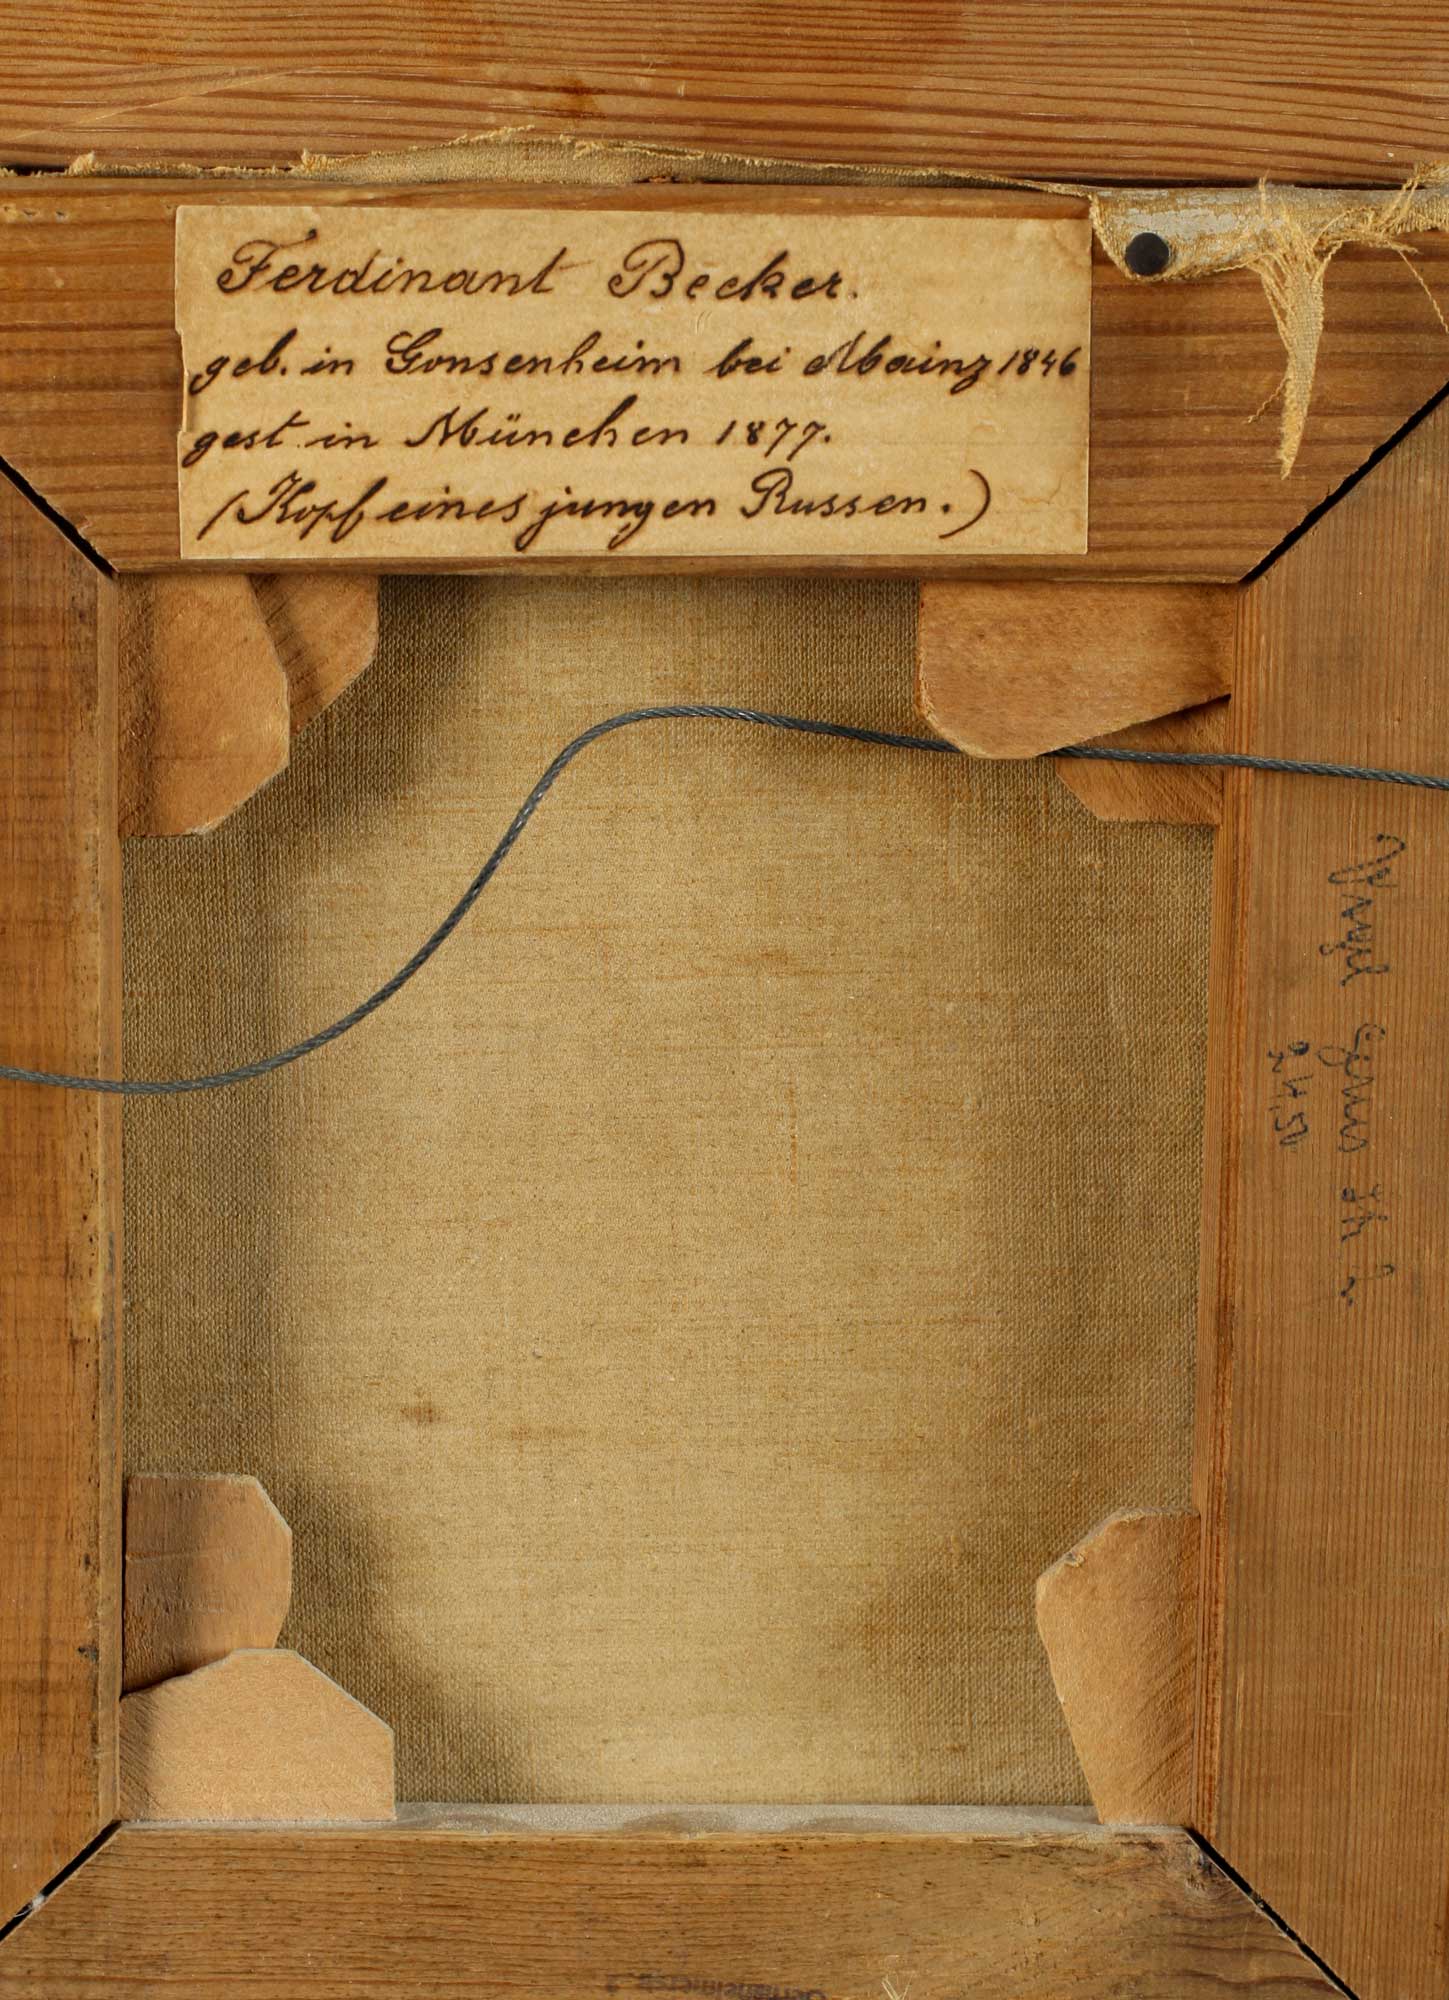 Ferdinant Becker.
geb. in Gonsenheim bei Mainz 1846
gest. in München 1877.
(Kopf eines jungen Russen.)